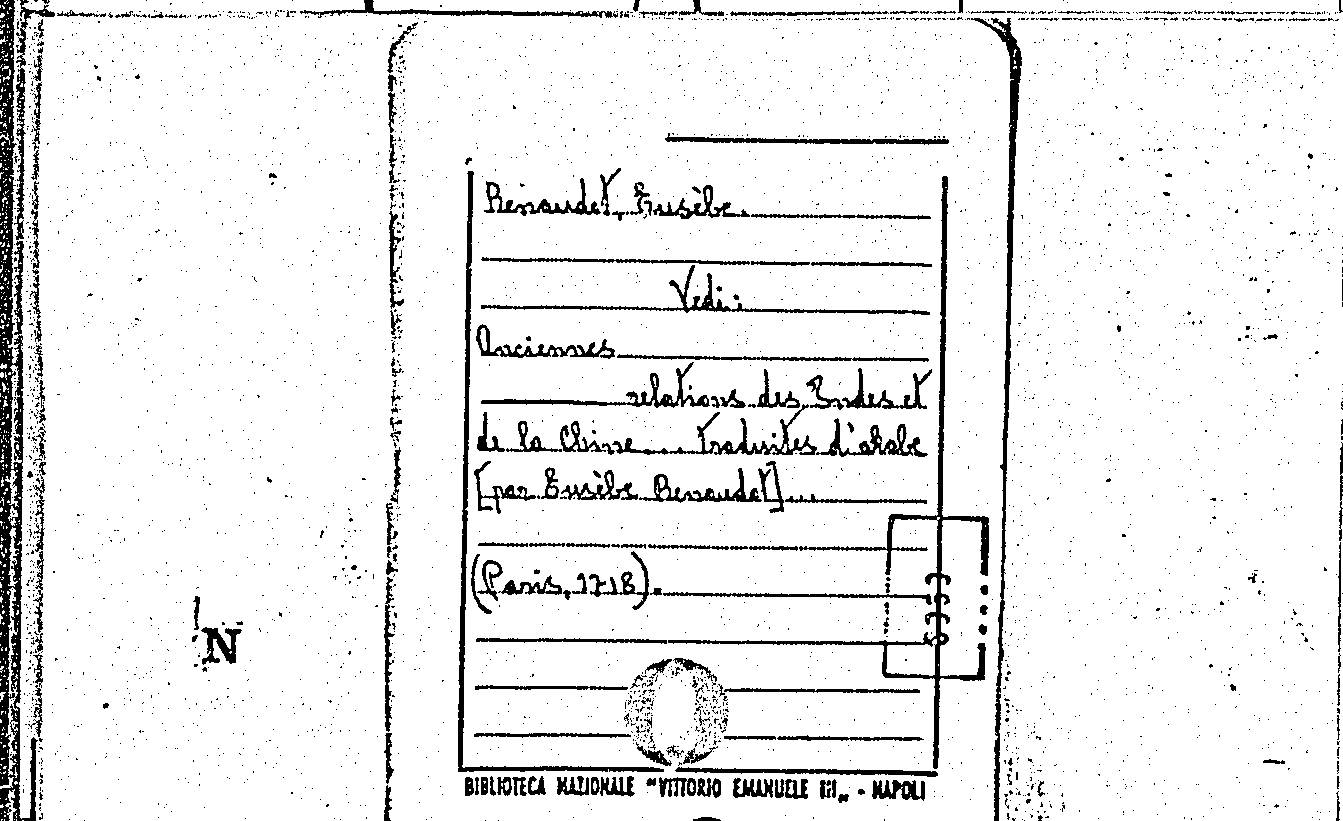 Renaudot, Eusèbe.
Vedi:
Anciennes
relations des Indes et
de la Chine... Traduites d'arabe
[par Eusèbe Renaudot]...
(Paris, 1718).
N
BIBLIOTECA NAZIONALE "VITTORIO EMANUELE III„ - NAPOLI